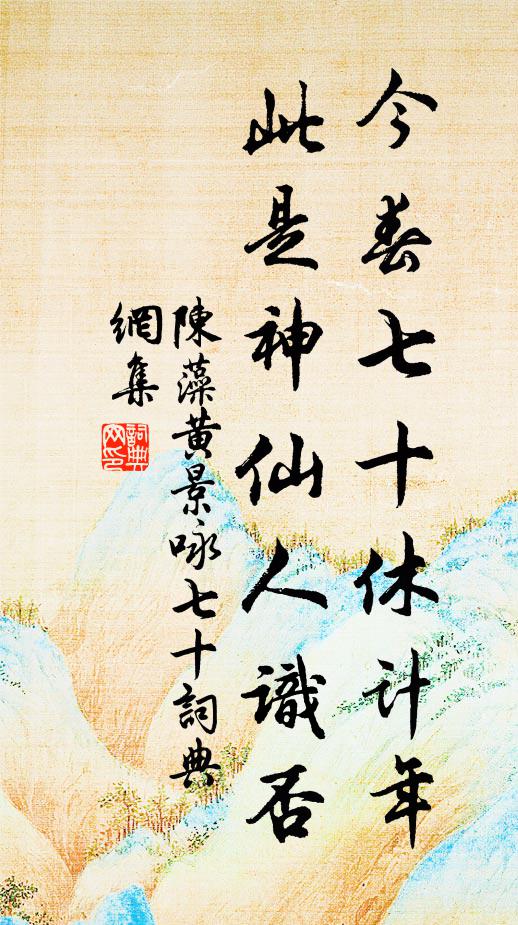 今春七十休計年
此是神仙人識否
陳藻黃景咏七十詞典
網集
詞典
网印